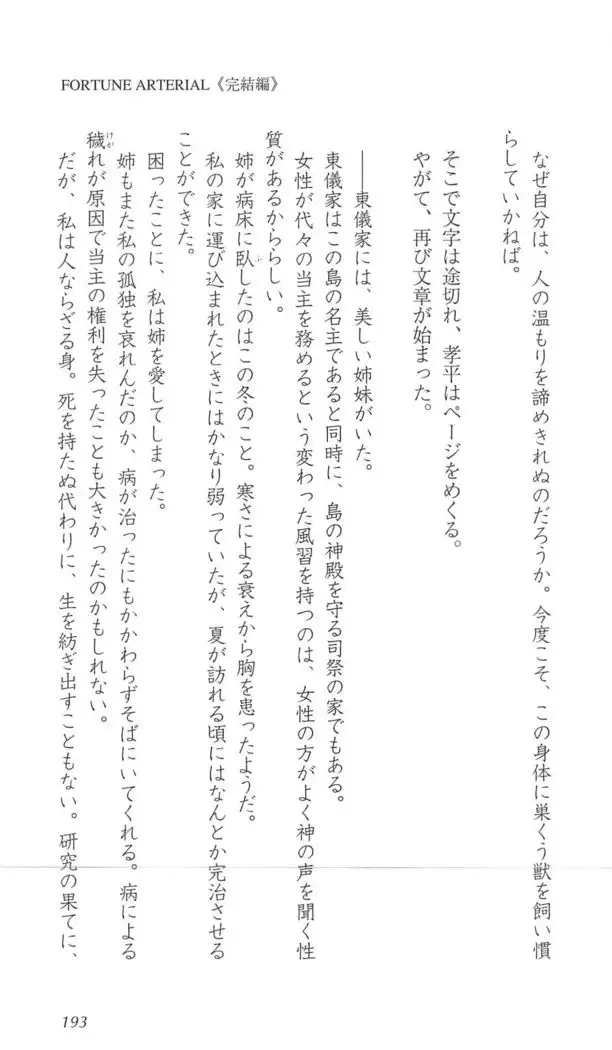 FORTUNE ARTERIAL《完結編》
なぜ自分は、人の温もりを諦めきれぬのだろうか。今度こそ、この身体に巣くう獣を飼い慣
らしていかねば。
そこで文字は途切れ、孝平はページをめくる。
やがて、再び文章が始まった。
――東儀家には、美しい姉妹がいた。
東儀家はこの島の名主であると同時に、島の神殿を守る司祭の家でもある。
女性が代々の当主を務めるという変わった風習を持つのは、女性の方がよく神の声を聞く性
質があるからららしい。
姉が病床に臥したのはこの冬のこと。寒さによる衰えから胸を患ったようだ。
私の家に運び込まれたときにはかなり弱っていたが、夏が訪れる頃にはなんとか完治させる
ことができた。
困ったことに、私は姉を愛してしまった。
姉もまた私の孤独を哀れんだのか、病が治ったにもかかわらずそばにいてくれる。病による
穢れが原因で当主の権利を失ったことも大きかったのかもしれない。
だが、私は人ならざる身。死を持たぬ代わりに、生を紡ぎ出すこともない。研究の果てに、
193